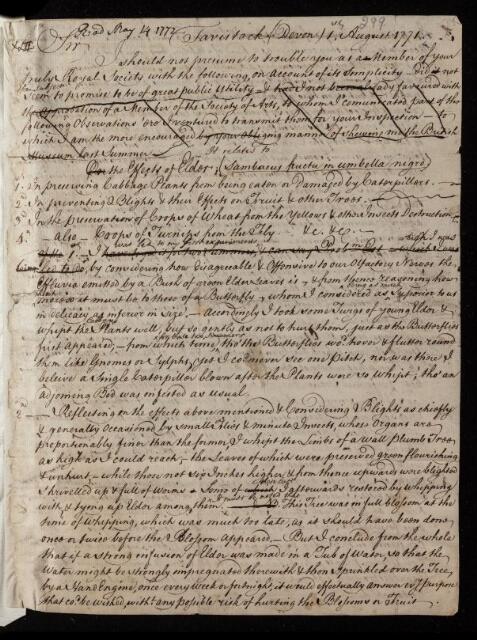 Read May 14 1772
Tavistock Devon 21 August 1771. 299
Sir
I should not presume to trouble you as a Member of your
truly Royal Society with the following, on account of its Simplicity did it not
seem to promise to be of great public Utility had I not been already favoured with
the Approbation of a Member of the Society of Arts, to whom I comunicated part of the
following Observations ere I ventured to transmit them for your Inspection to
which I am the more encouraged by your obliging manner of shewing me the British
Museum last Summer It related to
On the Effects of Elder; Sambucus fructu in umbella nigro
1. In preserving Cabbage Plants from being eaten or Damaged by Caterpillars.
2. In preventing Blights & their Effects on Fruit & other Trees.
3. In the preservation of Crops of Wheat from the Yellows & other Insects Destruction
4. Also Crops of Turneps from the Fly &c. &c.
by considering how Disagreable & Offensive to our Olfactory Nerves the
Effluvia emitted by a Bush of green Elder Leaves is & from thence reasoning how
much more so it must be to those of a Butterfly, whom I considered as being as much Superior to us
in delicacy as inferior in Size. Accordingly I took some Twigs of young Elder &
whipt the Cabbage Plants well, but so gently as not to hurt them, just as the Butterflies
first appeared; from which time, tho' the Butterflies wod. hover & flutter round
them like Gnomes or Sylphs, yet I cod. never see one pitch, nor was there I
believe a Single Caterpillar blown after the Plants were so whipt; tho' an
adjoining Bed was infested as usual.
2. Reflecting on the effects above mentioned & Considering Blights as chiefly
& generally Occasioned by small Flies & minute Insects, whose Organs are
proportionably finer than the former I whipt the Limbs of a Wall Plumb Tree
as high as I could reach; the Leaves of which were preserved green flourishing
& unhurt, while those not six Inches higher & from thence upwards were blighted
Shrivelled up & full of Worms Some of which I afterwards restored by Whipping
with, & tying up Elder among them. It must be noted that This Tree was in full blossom at the
time of Whipping, which was much too late, as it should have been done
once or twice before the Blossom appeared. But I conclude from the whole
that if a strong infusion of Elder was made in a Tub of Water, so that the
Water might be strongly impregnated therewith & then sprinkled over the Tree,
by a Hand Engine, once every Week or fortnight, it would effectually answer every purpose
that cod. be wished, witht. any possible risk of hurting the Blossoms or Fruit.